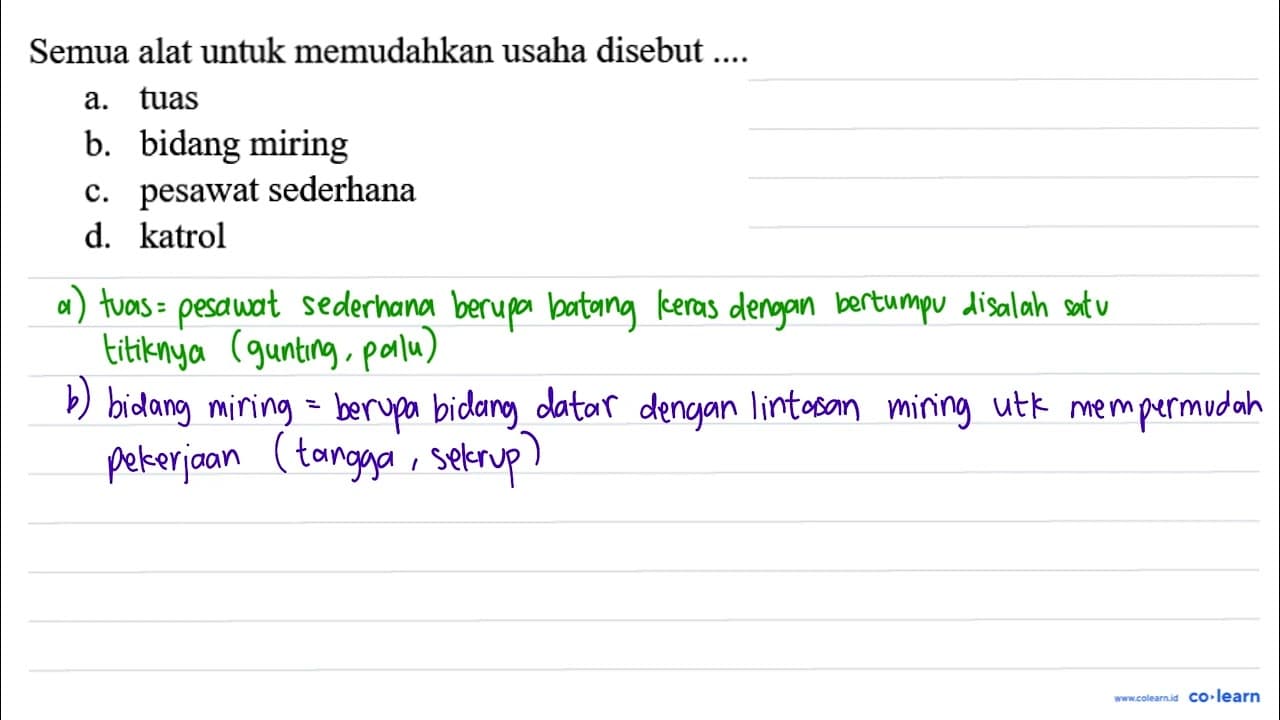 Semua alat untuk memudahkan usaha disebut ....
a. tuas
b. bidang miring
c. pesawat sederhana
d. katrol
a) tuas = pesawat sederhana berupa batang keras dengan bertumpu disalah satu
titiknya (gunting, palu)
b) bidang miring = berupa bidang datar dengan lintasan miring utk mempermudah
pekerjaan (tangga, sekrup)
www.colearn.id co·learn